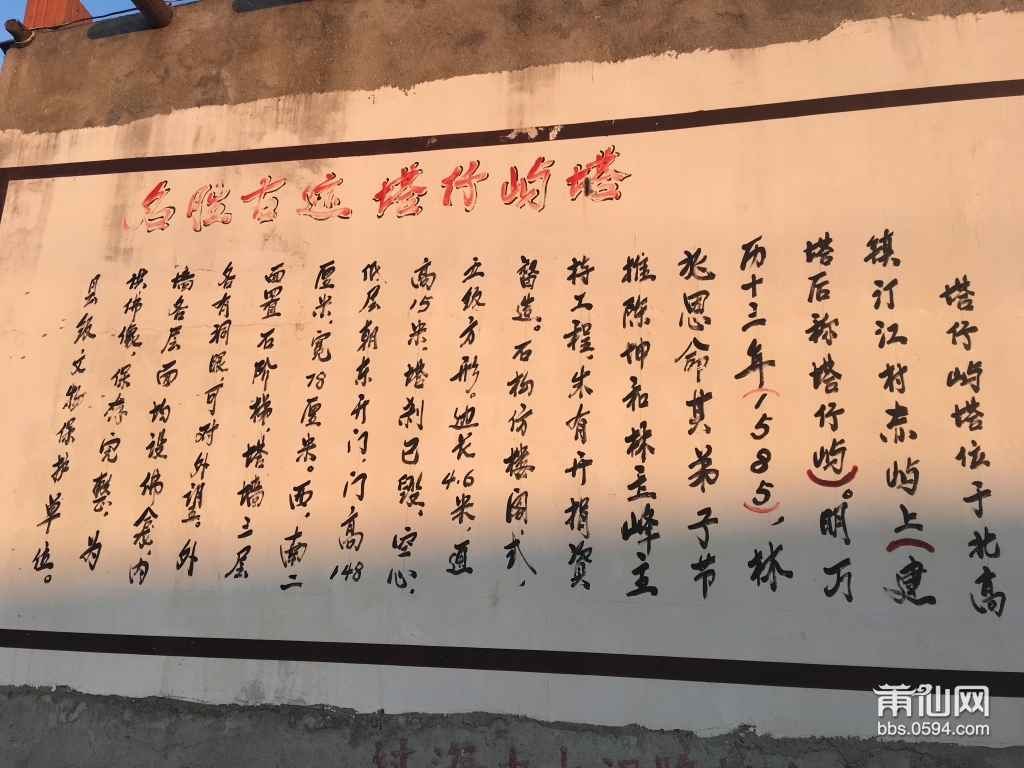 名胜古迹 塔仔屿塔
塔仔屿塔位于北高
镇汀江村赤屿上(建
塔后称塔仔屿)。明万
历十三年(1585),林
兆恩命其弟子节
推陈坤和林主峰主
持工程,朱有开捐资
督造。石构仿楼阁式,
五级方形。边长4.6米,通
高15米,塔刹已毁,空心,
低层朝东开门,门高148
厘米,宽78厘米。西,南二
面置石阶梯,塔墙三层
各有洞眼可对外望。外
墙各层面均设佛龛,内
供佛像,保存完整,为
县级文物保护单位。
莆仙网
bbs.0594.com